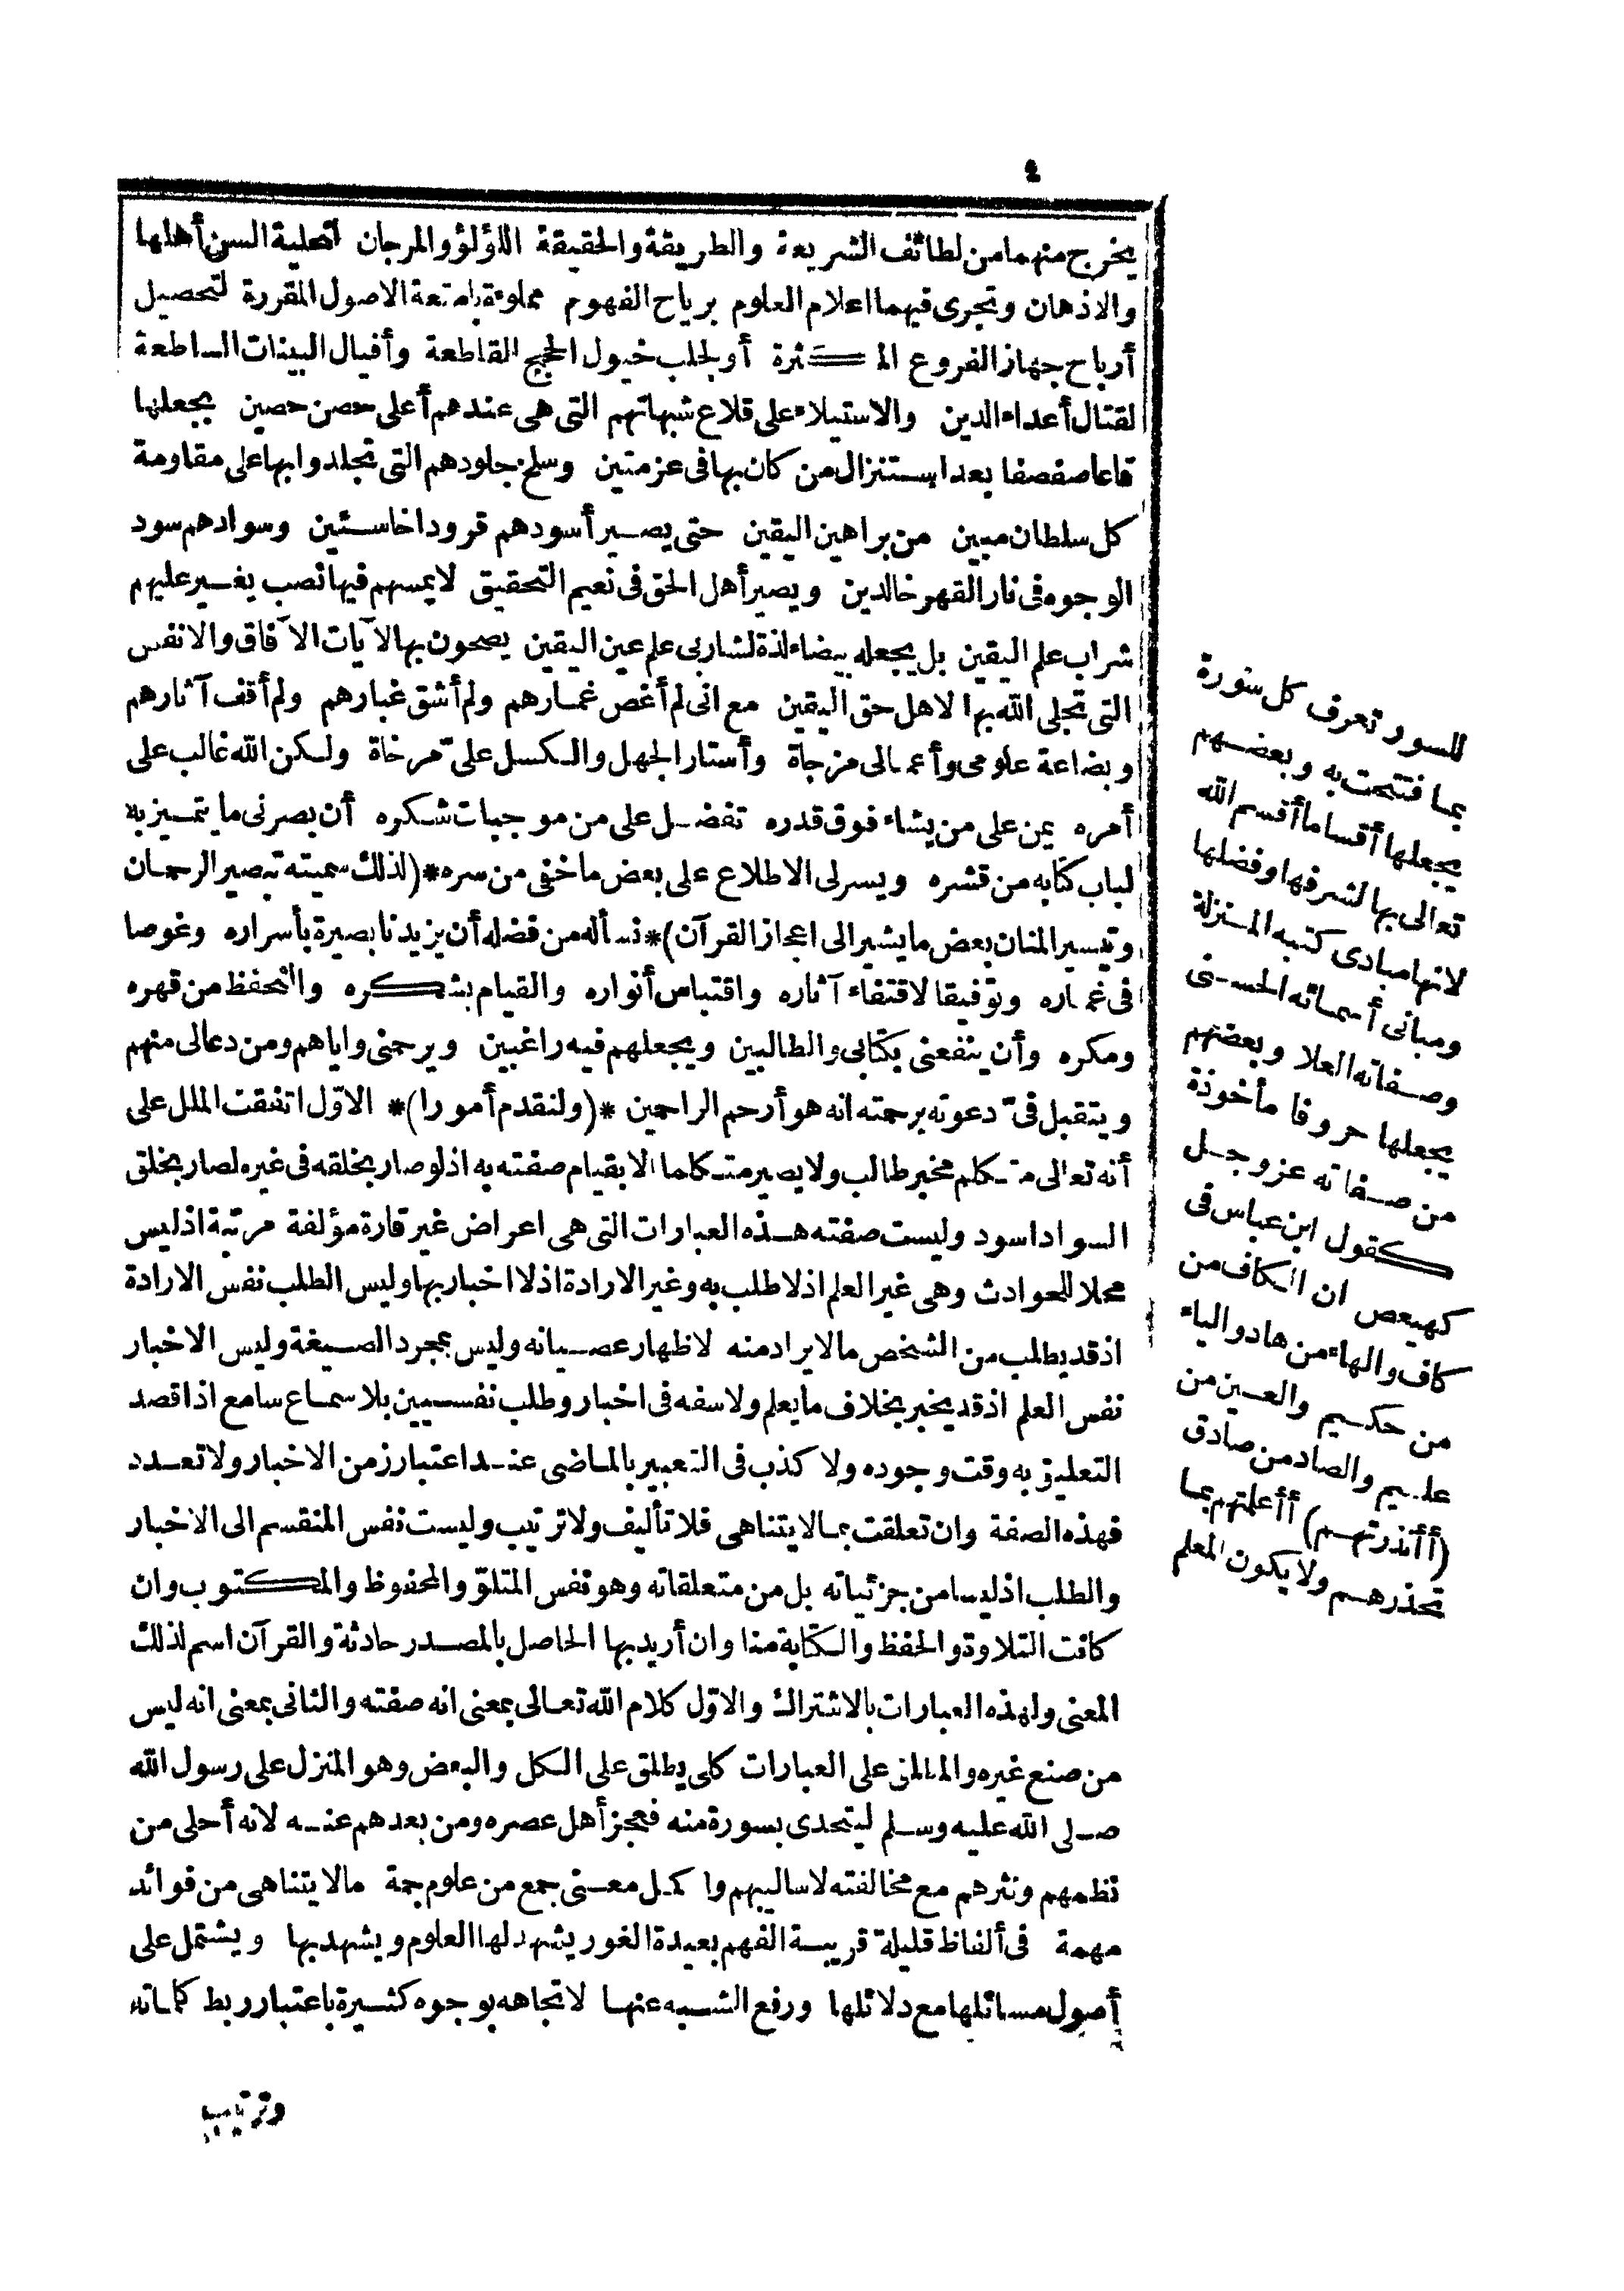 ٤
يخرج منهما من لطائف الشريعة والطريقة والحقيقة اللؤلؤ والمرجان لتحلية السن أهلها
والاذهان وتجرى فيهما اعلام العلوم برياح الفهوم مملوءة بامتعة الاصول المقررة لتحصيل
أرباح جهاز الفروع المكثرة أو لجلب خيول الحجج القاطعة وأفيال البينات الساطعة
لقتال أعداء الدين والاستيلاء على قلاع شبهاتهم التى هى عندهم أعلى حصن حصين يجعلها
قاعا صفصفا بعد استنزال من كان بها فى عز متين وسلخ جلودهم التى تجلدوا بها على مقاومة
كل سلطان مبين من براهين اليقين حتى يصير أسودهم قرودا خاسئين وسوادهم سود
الوجوه فى نار القهر خالدين ويصير أهل الحق فى نعيم التحقيق لا يمسهم فيها نصب يغير عليهم
شراب علم اليقين بل يجعله بيضاء لذة لشاربى علم عين اليقين يصحون بها لآيات الآفاق والانفس
التى تجلى الله بها لاهل حق اليقين مع انى لم أغص غمارهم ولم أشق غبارهم ولم أقف آثارهم
وبضاعة علومى وأعمالى مزجاة وأستار الجهل والكسل علىّ مرخاة ولكن الله غالب على
أمره يمن على من يشاء فوق قدره تفضل على من موجبات شكره أن بصرنى ما يتميز به
لباب كتابه من قشره ويسر لى الاطلاع على بعض ما خفى من سره *(لذلك سميته تبصير الرحمان
وتيسير المنان بعض ما يشير الى اعجاز القرآن)* نسأله من فضله أن يزيدنا بصيرة بأسراره وغوصا
فى غماره وتوفيقا لاقتفاء آثاره واقتباس أنواره والقيام بشكره والتحفظ من قهره
ومكره وأن ينفعنى بكتابى والطالبين ويجعلهم فيه راغبين ويرحمنى واياهم ومن دعا لى منهم
ويتقبل فىّ دعوته برحمته انه هو أرحم الراحمين *(ولنقدم أمورا)* الاوّل اتفقت الملل على
أنه تعالى متكلم مخبر طالب ولا يصير متكلما الا بقيام صفته به اذ لو صار بخلقه فى غيره لصار بخلق
السواد اسود وليست صفته هذه العبارات التى هى اعراض غير قارة مؤلفة مرتبة اذ ليس
محلا للحوادث وهى غير العلم اذ لا طلب به وغير الارادة اذ لا اخبار بها وليس الطلب نفس الارادة
اذ قد يطلب من الشخص ما لا يراد منه لاظهار عصيانه وليس بمجرد الصيغة وليس الاخبار
نفس العلم اذ قد يخبر بخلاف ما يعلم ولا سفه فى اخبار وطلب نفسيين بلا سماع سامع اذا قصد
التعليق به وقت وجوده ولا كذب فى التعبير بالماضى عند اعتبار زمن الاخبار ولا تعدد
فهذه الصفة وان تعلقت بما لا يتناهى فلا تأليف ولا ترتيب وليست نفس المنقسم الى الاخبار
والطلب اذ ليسا من جزئياته بل من متعلقاته وهو نفس المتلوّ والمحفوظ والمكتوب وان
كانت التلاوة والحفظ والكتابة منا وان أريد بها الحاصل بالمصدر حادثة والقرآن اسم لذلك
المعنى ولهذه العبارات بالاشتراك والاوّل كلام الله تعالى بمعنى انه صفته والثانى بمعنى انه ليس
من صنع غيره والمطلق على العبارات كلى يطلق على الكل والبعض وهو المنزل على رسول الله
صلى الله عليه وسلم ليتحدى بسورة منه فعجز أهل عصره ومن بعدهم عنه لانه أحلى من
نظمهم ونثرهم مع مخالفته لاساليبهم واكمل معنى جمع من علوم جمة مالا يتناهى من فوائد
مهمة فى ألفاظ قليلة قريبة الفهم بعيدة الغور يشهد لها العلوم ويشهد بها ويشتمل على
أصول مسائلها مع دلائلها ورفع الشبه عنها لاتجاهه بوجوه كثيرة باعتبار ربط كلماته
وترتيب
للسور تعرف كل سورة
بما افتتحت به وبعضهم
يجعلها أقساما أقسم الله
تعالى بها لشرفها وفضلها
لانها مبادى كتبه المنزلة
ومبانى أسمائه الحسنى
وصفاته العلا وبعضهم
يجعلها حروفا مأخوذة
من صفاته عز وجل
كقول ابن عباس فى
كهيعص ان الكاف من
كاف والهاء من هاد والياء
من حكيم والعين من
عليم والصاد من صادق
(أأنذرتهم) أأعلمتهم بما
تحذرهم ولا يكون المعلم